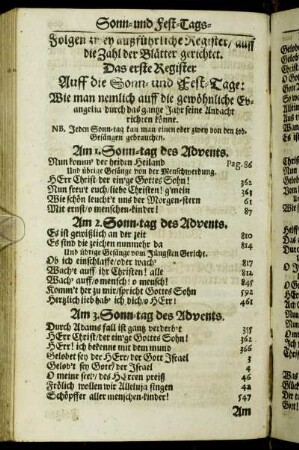 Sonn- und Fest-Tags-
Folgen zwey außführliche Register/ auff
die Zahl der Blätter gerichtet.
Das erste Register
Auff die Sonn- und Fest-Tage:
Wie man nemlich auff die gewöhnliche Ev-
angelia durch das gantze Jahr seine Andacht
richten könne.
NB. Jeden Sonn-tag kan man einen oder zween von den Lob-
Gesängen gebrauchen.
Am 1. Sonn-tag des Advents.
Nun komm' der heiden Heiland Pag. 86
Und übrige Gesänge von der Menschwerdung.
HErr Christ der ein'ge Gottes Sohn! 362
Nun freut euch/ liebe Christen! g'mein 361
Wie schön leucht't uns der Morgen-stern 61
Mit ernst/ o menschen-kinder! 87
Am 2. Sonn-tag des Advents.
Es ist gewißlich an der zeit 810
Es sind die zeichen nunmehr da 814
Und übrige Gesänge vom Jüngsten Gericht.
Ob ich einschlaffe/ oder wach' 817
Wach't auff ihr Christen! alle 812
Wach' auff/ o mensch! o mensch! 848
Komm't her zu mir/ spricht Gottes Sohn 592
Hertzlich lieb hab' ich dich/ o HErr! 461
Am 3. Sonn-tag des Advents.
Durch Adams fall ist gantz verderb't
HErr Christ/ der ein'ge Gottes Sohn! 362
HErr! ich bekenne mit dem mund 366
Gelobet sey der HErr/ der Gott Israel 3
Gelob't sey Gott/ der Israel 4
O meine seel/ des HErren preiß 46
Frölich wollen wir Alleluja singen 42
Schöpffer aller menschen-kinder! 547
Am